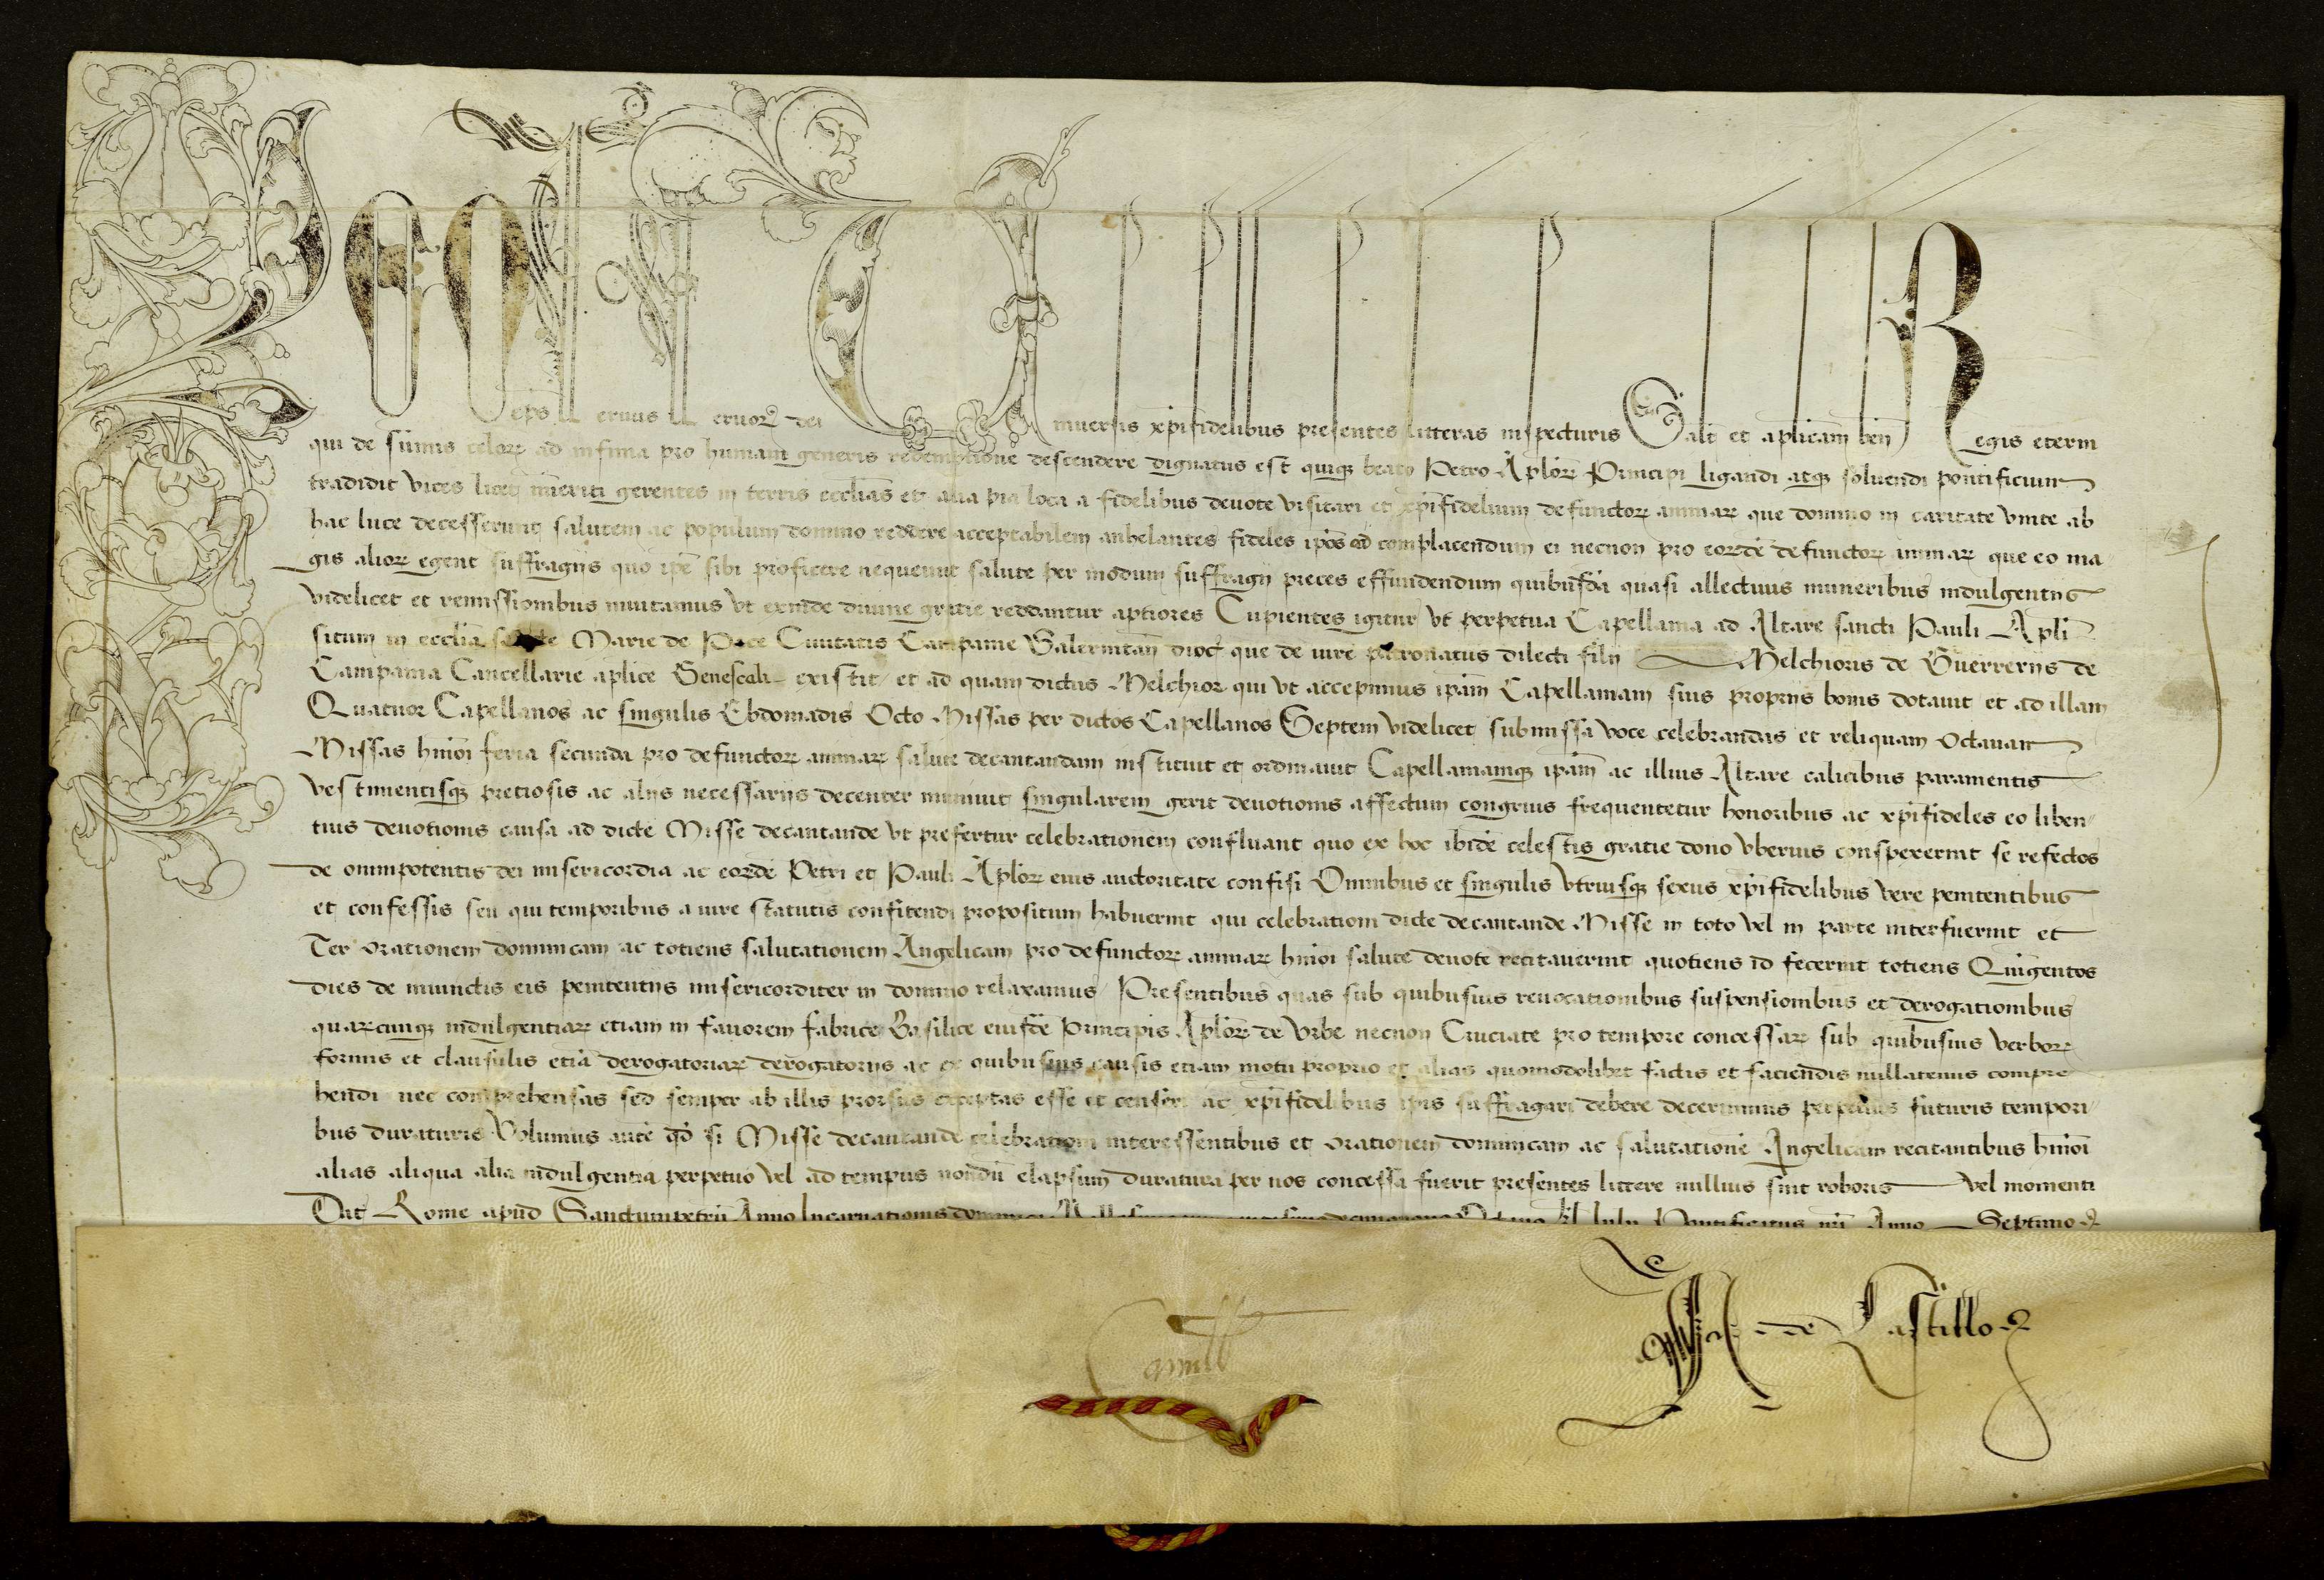 Leo eps Seruus Seruor dei Vniuersis xpifidelibus presentes litteras inspecturis Salt et aplicam ben Regis eterni
qui de sumis celor ad infima pro humani generis redemptione descendere dignatus est quiq beato Petro Aplor Principi ligandi atq soluendi pontificium
tradidit vices licet imeriti gerentes in terris ecclias et alia pia loca a fidelibus deuote visitari et xpifidelium defunctor animar que domino in caritate vnite ab
hac luce decesserunt salutem ac populum domino reddere acceptabilem anhelantes fideles ipos ad complacendum ei necnon pro eorde defunctor animar que eo ma
gis alior egent suffragijs quo ipe sibi proficere nequeunt salute per modum suffragij preces effundendum quibusda quasi allectiuis muneribus indulgentijs
videlicet et remissionibus inuitamus vt exinde diuine gratie reddantur aptiores Cupientes igitur vt perpetua Capellania ad Altare sancti Pauli Apli
situm in ecclia Marie de Pace Ciuitatis Campanie Salernitan dioc que de iure patronatus dilecti filij Melchioris de Guerrerijs de
Campania Cancellarie aplice Senescali existit et ad quam dictus Melchior qui vt accepimus ipam Capellaniam suis proprijs bonis dotauit et ad illam
Quatuor Capellanos ac singulis Ebdomadis Octo Missas per dictos Capellanos Septem videlicet submissa voce celebrandas et reliquam Octauam
Missas hmoi feria secunda pro defunctor animar salute decantandam instituit et ordinauit Capellaniamq ipam ac illius Altare calicibus paramentis
vestimentisq pretiosis ac alijs necessarijs decenter muniuit singularem gerit deuotionis affectum congruis frequentetur honoribus ac xpifideles eo liben
tius deuotionis causa ad dicte Misse decantande vt prefertur celebrationem confluant quo ex hoc ibide celestis gratie dono vberius conspexerint se refectos
de omnipotentis dei misericordia ac eorde Petri et Pauli Aplor eius auctoritate confisi Omnibus et singulis vtriusq sexus xpifidelibus vere penitentibus
et confessis seu qui temporibus a iure statutis confitendi propositum habuerint qui celebrationi dicte decantande Misse in toto vel in parte interfuerint et
Ter orationem dominicam ac totiens salutationem Angelicam pro defunctor animar hmoi salute deuote recitauerint quotiens id fecerint totiens Quingentos
dies de iniunctis eis penitentijs misericorditer in domino relaxamus Presentibus quas sub quibusuis reuocationibus suspensionibus et derogationibus
quarcunq indulgentiar etiam in fauorem fabrice Basilice eiusde Principis Aplor de Vrbe necnon Cruciate pro tempore concessar sub quibusuis verbor
formis et clausulis etia derogatoriar derogatorijs ac ex quibusuis causis etiam motu proprio et alias quomodolibet factis et faciendis nullatenus compre
hendi nec comprehensas sed semper ab illis prorsus exceptas esse et censeri ac xpifidelibus ipis suffragari debere decernimus perpetuis futuris tempori
bus duraturis Volumus aute qd si Misse decantande celebrationi interessentibus et orationem dominicam ac salutatione Angelicam recitantibus hmoi
alias aliqua alia indulgentia perpetuo vel ad tempus nondu elapsum duratura per nos concessa fuerit presentes littere nullius sint roboris vel momenti
Dat Rome apud Sanctumpetru Anno Incarnationis dominice Kl Iulij Pontificatus nri Anno Septimo
de Castillo